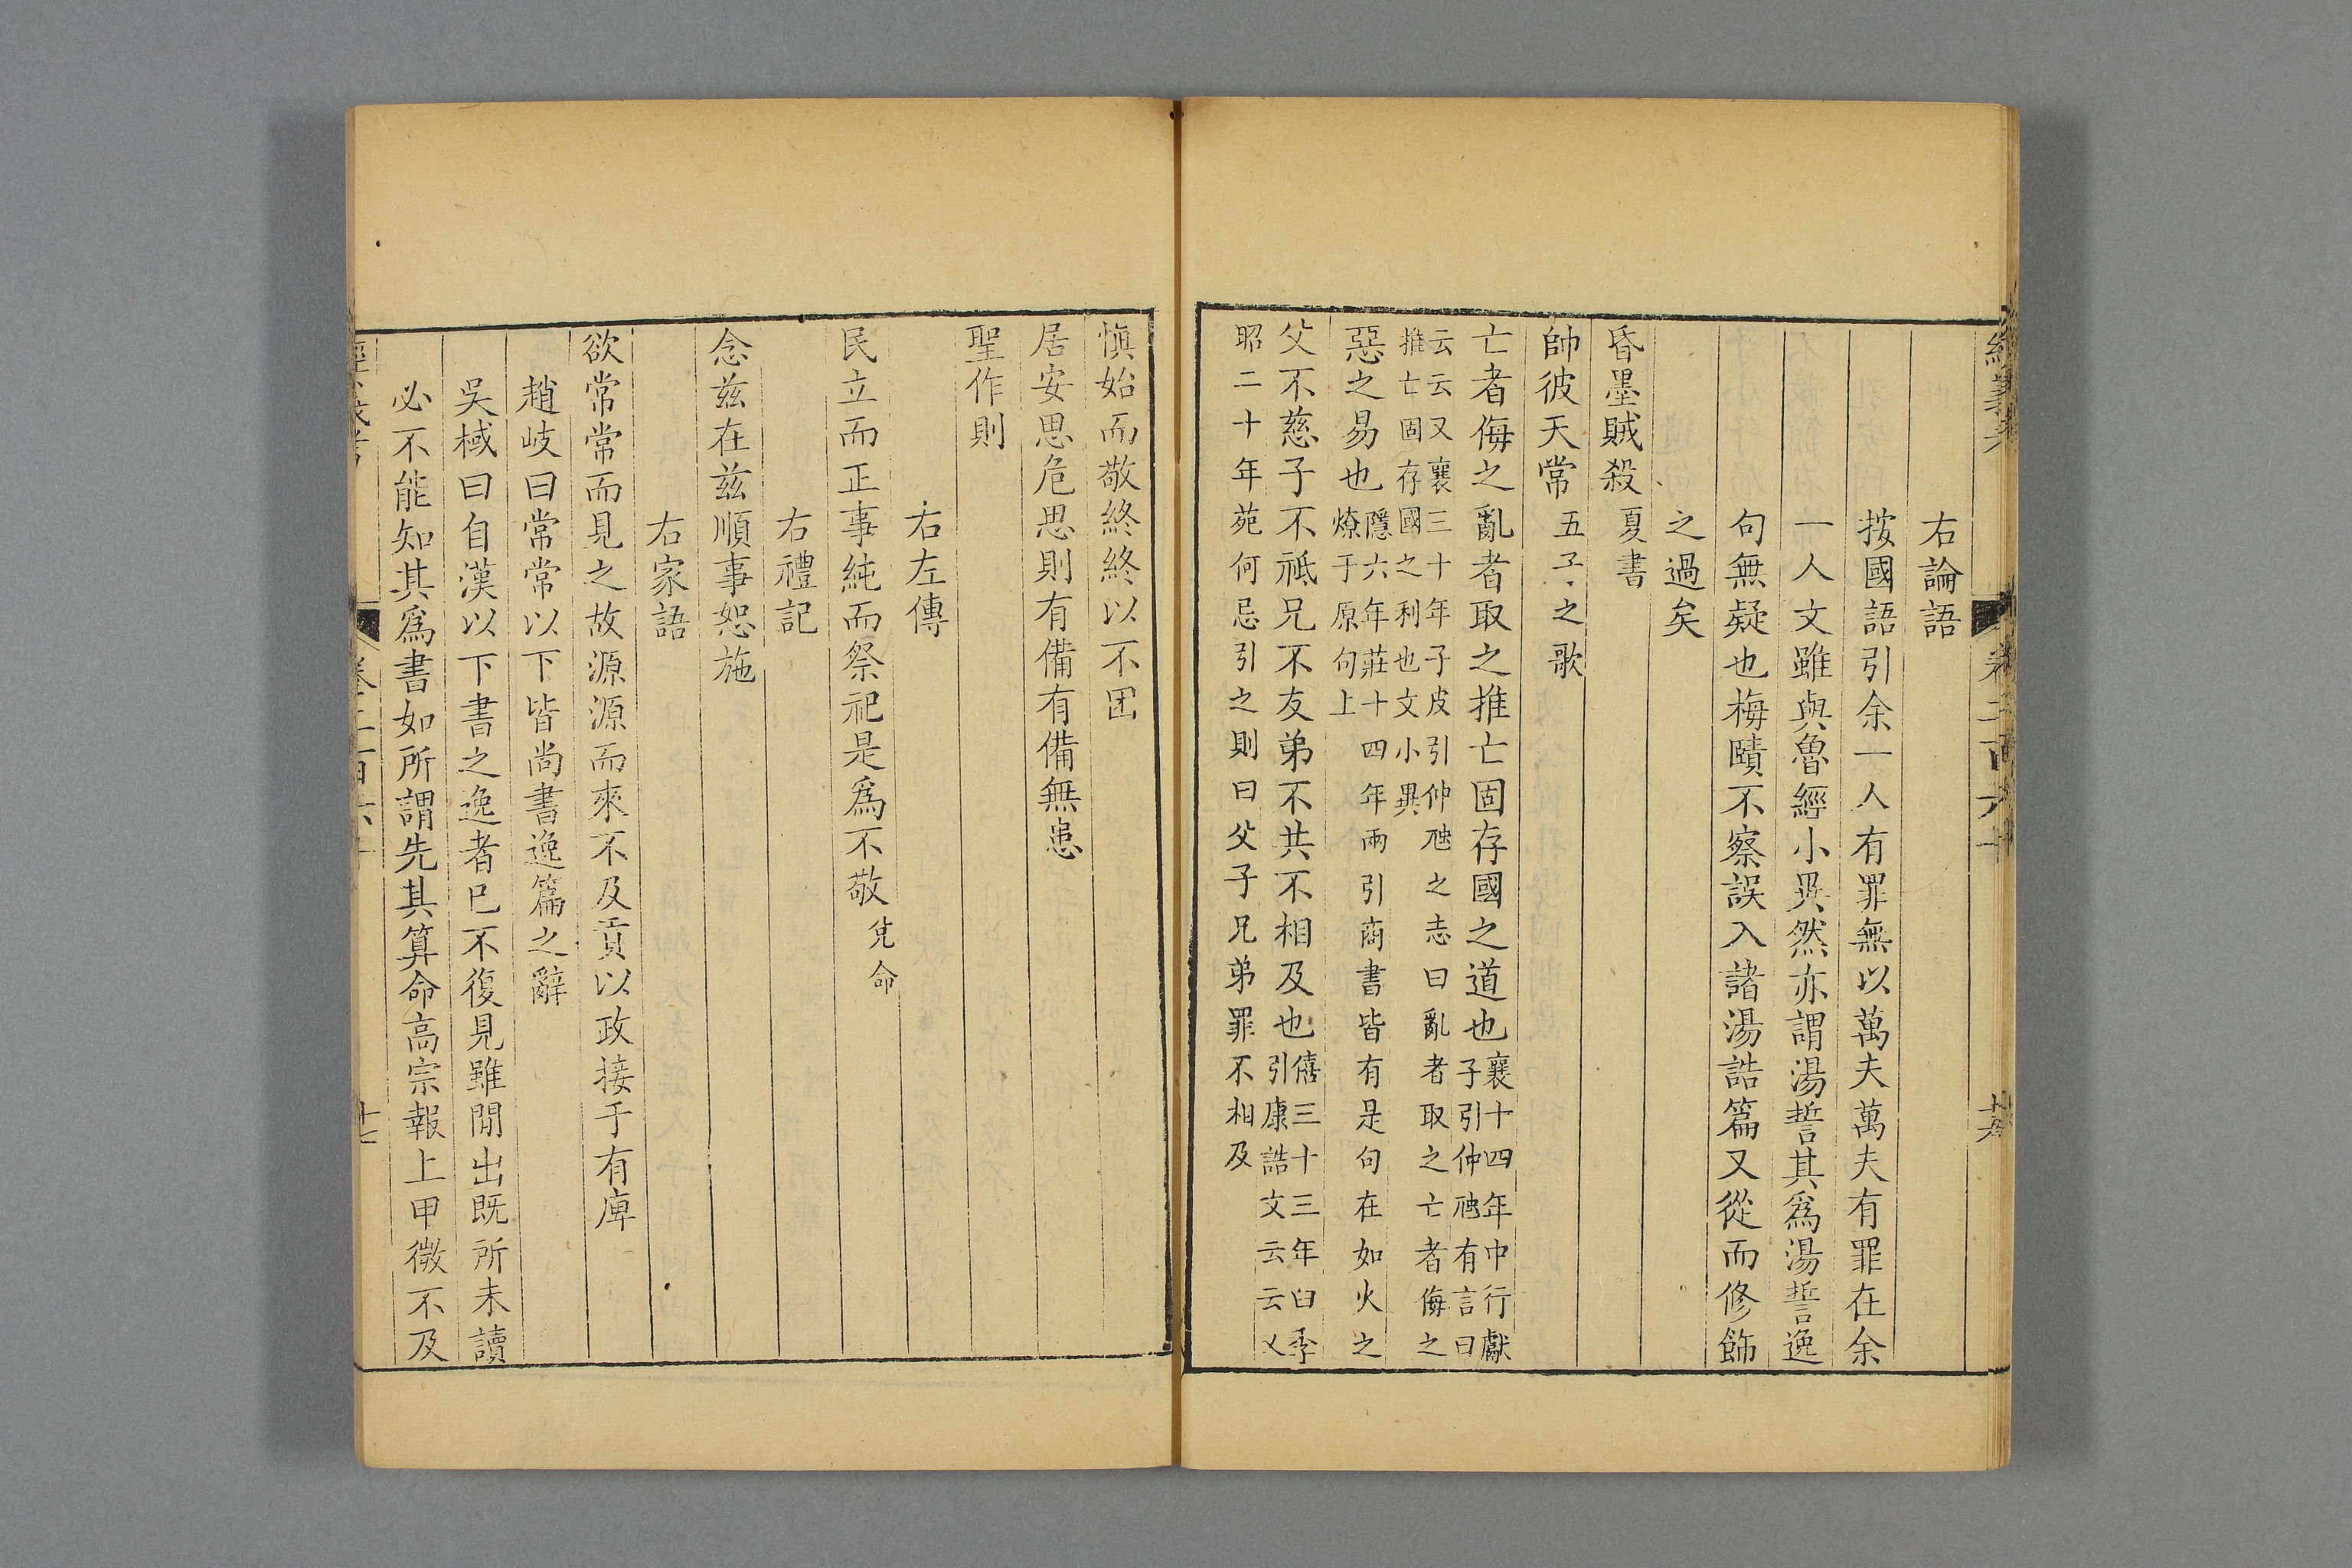 右論語
按國語引余一人有罪無以萬夫萬夫有罪在余
一人文雖與魯經小異然亦謂湯誓其爲湯誓逸
句無疑也梅賾不察誤入諸湯誥篇又從而修飾
之過矣
昏墨賊殺夏書
帥彼天常五子之歌
亡者侮之亂者取之推亡固存國之道也襄十四年中行獻
子引仲虺有言曰
云云又襄三十年子皮引仲虺之志曰亂者取之亡者侮之
推亡固存國之利也文小異
惡之易也隱六年莊十四年兩引商書皆有是句在如火之
燎于原句上
父不慈子不祗兄不友弟不共不相及也僖三十三年臼季
引康誥文云云又
昭二十年苑何忌引之則曰父子兄弟罪不相及
慎始而敬終終以不困
居安思危思則有備有備無患
聖作則
右左傳
民立而正事純而祭祀是爲不敬兌命
右禮記
念茲在茲順事恕施
右家語
欲常常而見之故源源而來不及貢以政接于有庳
趙岐曰常常以下皆尚書逸篇之辭
吳棫曰自漢以下書之逸者已不復見雖閒出既所未讀
必不能知其爲書如所謂先其算命高宗報上甲微不及